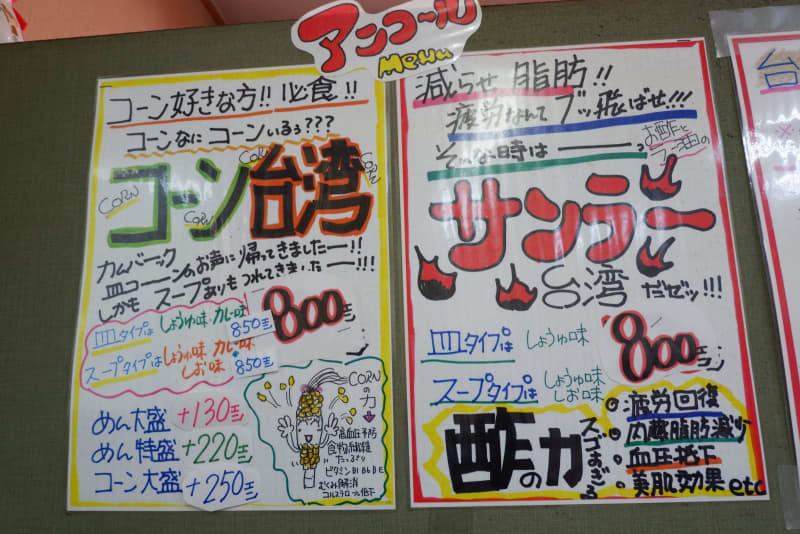 アンコール
MeNu
コーン好きな方!! 必食!!
コーンなに コーンいるぅ???
コーン台湾
CORN
CORN
CORN
CORN
カムバーック
皿コーーンのお声に帰ってきましたーー!!
しかも スープありもつれてきましたーー!!!
800円
皿タイプは しょうゆ味 カレー味
850円
スープタイプは しょうゆ味 カレー味
しお味 850円
めん大盛 +130円
めん特盛 +220円
コーン大盛 +250円
CORNの力
高血圧予防
食物繊維
たっぷり
ビタミンB1 B6 E
むくみ解消
コルステロール低下
減らせ 脂肪!!
疲労なんて ブッ飛ばせ!!!
そんな時は ーーっ
お酢と
ラー油の
サンラー
台湾 だぜッ!!!
800円
皿タイプは しょうゆ味
スープタイプは しょうゆ味
しお味
酢の力
スゴすぎる
疲労回復
内臓脂肪減少
血圧低下
美肌効果 etc
台